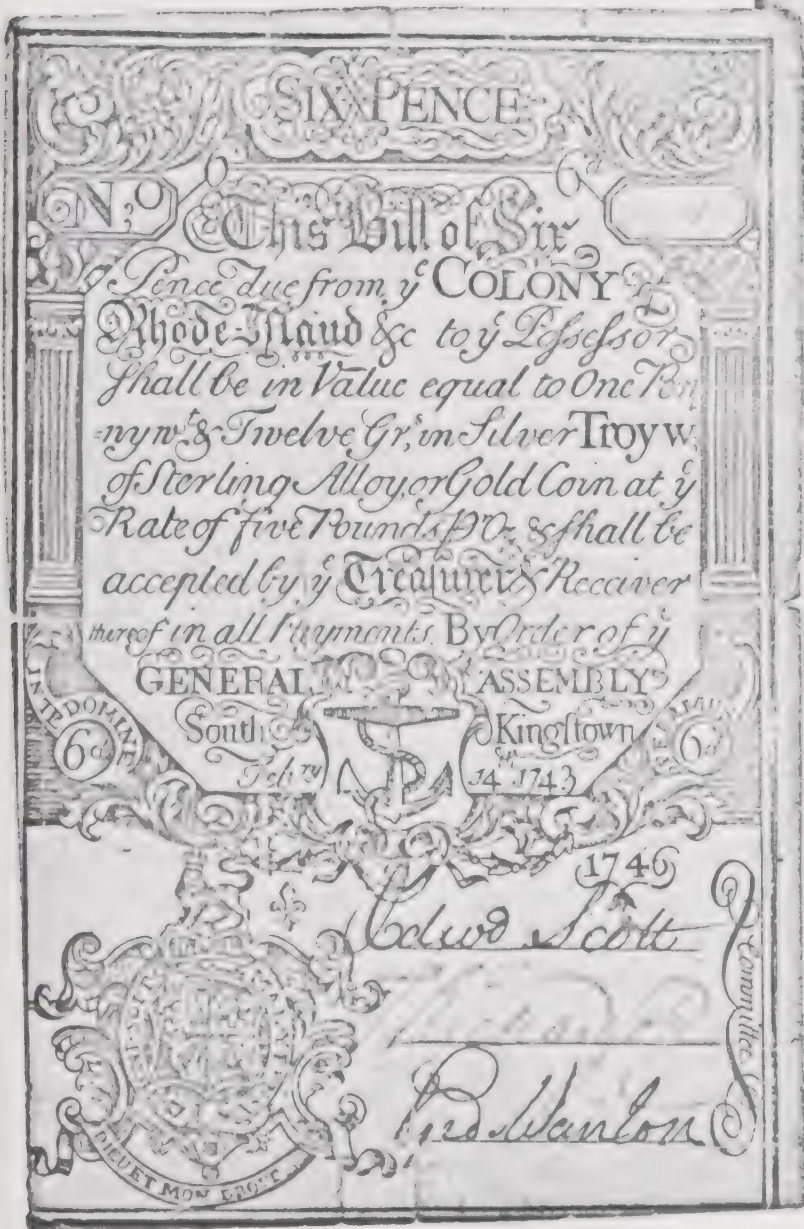 SIX PENCE
No
This Bill of Six
Pence due from yᵉ COLONY of
Rhode-Island &c to yᵉ Possessor
shall be in Value equal to One Pen
=nywᵗ & Twelve Grˢ, in Silver Troy wᵗ
of Sterling Alloy, or Gold Coin at yᵉ
Rate of five Pounds Pʳ Oz, & shall be
accepted by yᵉ Treasurer & Receiver
thereof in all Payments. By Order of yᵉ
GENERAL ASSEMBLY
South Kingstown
Febʳʸ 14ᵗʰ 1743
IN TE DOMINE
6ᵈ 6ᵈ
1746
Edwd Scott
Wanton
Committee
DIEU ET MON DROIT